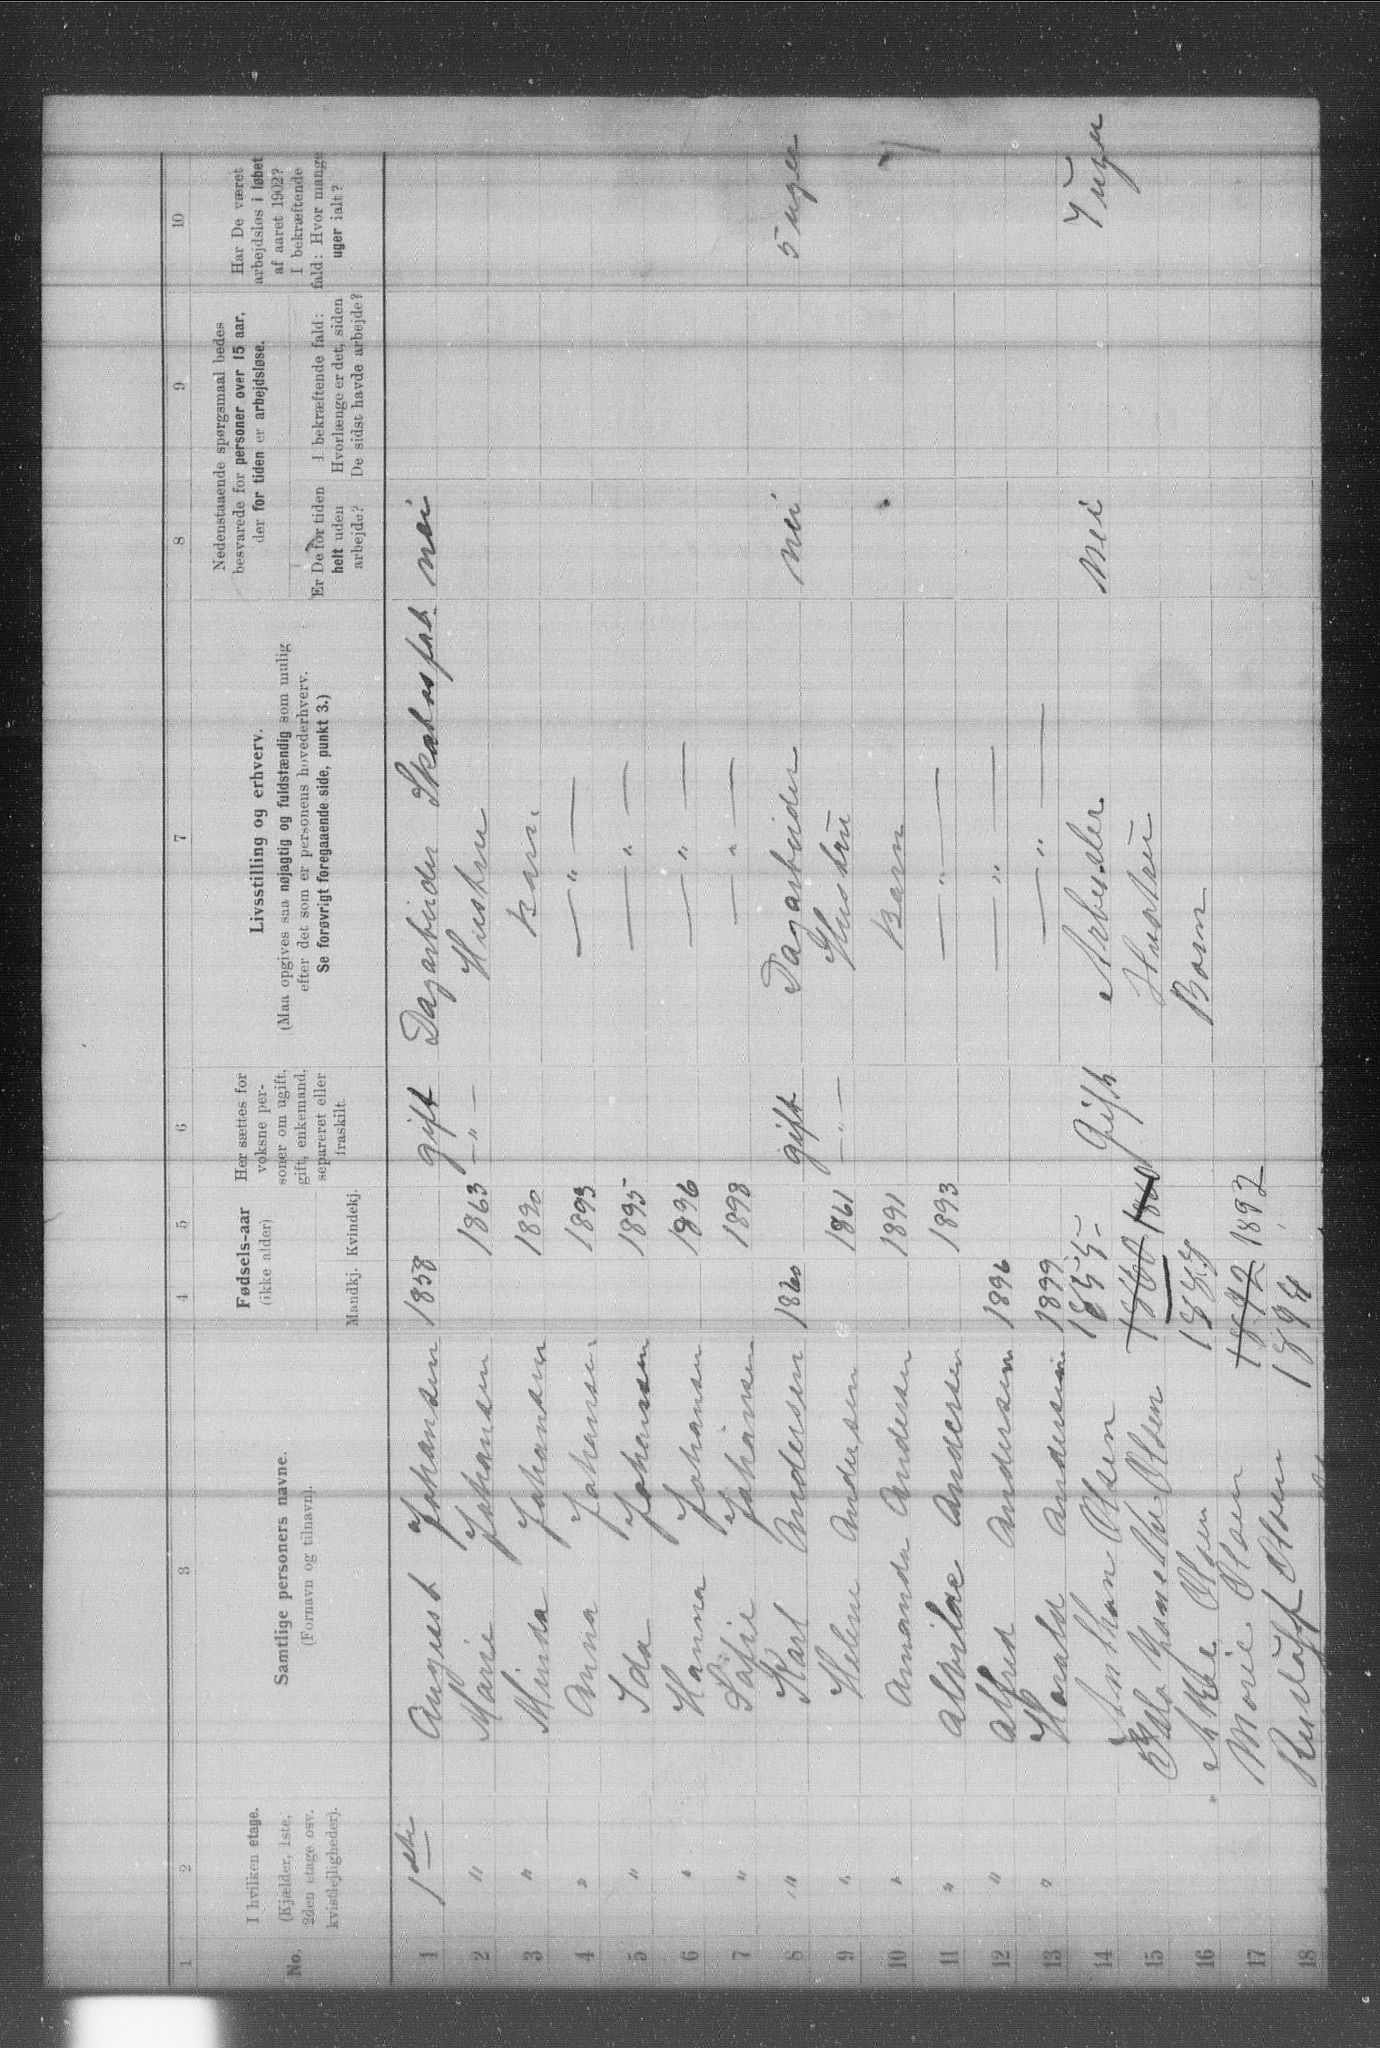 1 2 3 4 5 6 7 8 9 10
No.
I hvilken etage.
(Kjælder, 1ste,
2den etage osv.
kvistlejligheder).
Samtlige personers navne.
(Fornavn og tilnavn).
Fødsels-aar
(ikke alder)
Mandkj. Kvindekj.
Her sættes for
voksne per-
soner om ugift,
gift, enkemand,
separeret eller
fraskilt.
Livsstilling og erhverv.
(Maa opgives saa nøjagtig og fuldstændig som mulig
efter det som er personens hovederhverv.
Se forøvrigt foregaaende side, punkt 3.)
Nedenstaaende spørgsmaal bedes
besvarede for personer over 15 aar,
der for tiden er arbejdsløse.
Er De for tiden
helt uden
arbejde?
I bekræftende fald:
Hvorlænge er det, siden
De sidst havde arbejde?
Har De været
arbejdsløs i løbet
af aaret 1902?
I bekræftende
fald: Hvor mange
uger ialt?
1 1ste August Johansen 1858 gift Dagarbeider nei
2 " Marie Johansen 1863 — " — Hustru
3 " Minda Johansen Barn.
4 " Anna Johansen. 1893 — " —
5 " Ida Johansen 1895 — " —
6 " Hanna Johansen 1896 — " —
7 " Johansen 1898 — " —
8 " Karl Andersen 1860 gift Dagarbeider nei 5 uger
9 " Helene Andersen 1861 — " — Hustru
10 " Amanda Andersen 1891 Barn
11 " Alvilde Andersen 1893 — " —
12 " Alfred Andersen 1896 — " —
13 " Harald Andersen 1899 — " —
14 Anthon Olsen 1855 Gift Arbeider. nei 7 uger
15 Olsen 1860 1860 Hustru
16 Olsen Børn
17 Marie Olsen 1892 1892
18 Rudolf Olsen 1894